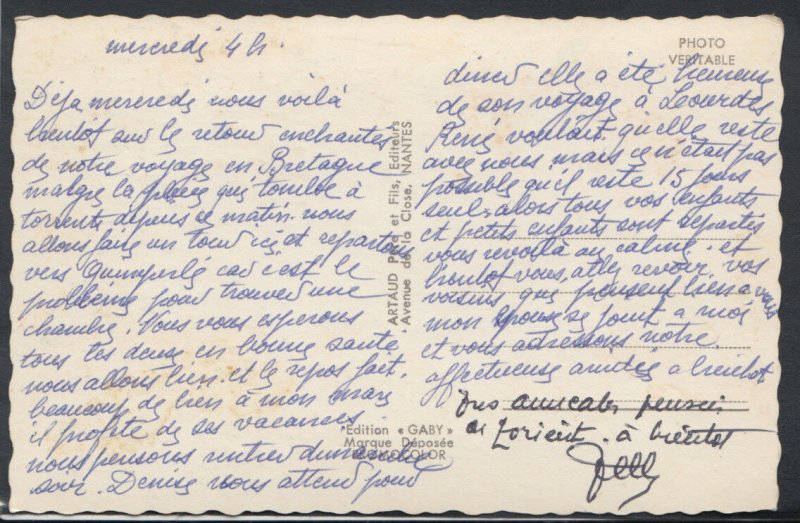 mercredi 4 h.
Déja mercredi nous voilà
bientot sur le retour enchantés
de notre voyage en Bretagne
malgré la pluie qui tombe à
torrents depuis ce matin. nous
allons faire un tour ici et repartons
vers Quimperlé car c'est le
problème pour trouver une
chambre. Vous vous esperons
tous les deux en bonne santé
nous allons bien. et le repos fait.
beaucoup de bien à mon mari
il profite de ses vacances.
nous pensons rentrer dimanche
soir. Denise nous attend pour
PHOTO
VERITABLE
diner elle a été heureuse
de son voyage à Leourdes
René voulait qu'elle reste
avec nous mais ce n'était pas
possible qu'il reste 15 jours
seul. alors tous vos enfants
et petits enfants sont repartis
vous revoilà au calme. et
bientot vous allez revoir vos
voisins qui pensent bien à vous
mon epoux se joint a moi
et vous adressons notre.
affectueuse amitié a bientot
Tres amicales pensées
de Lorient. à bientot
ARTAUD Père et Fils, Editeurs
Avenue de la Close, NANTES
Edition « GABY »
Marque Déposée